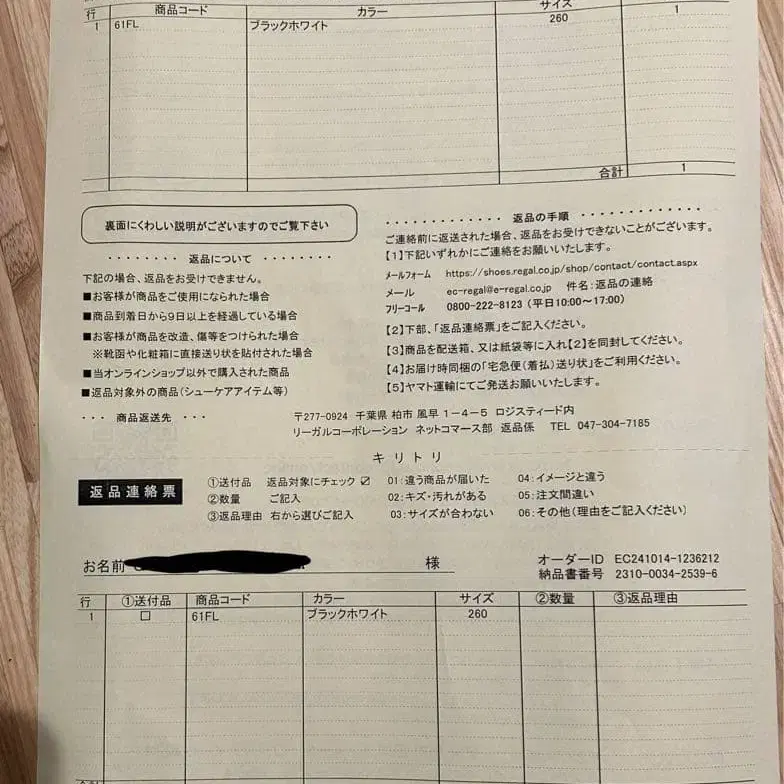 行 商品コード カラー サイズ
1 61FL ブラックホワイト 260 1
合計 1
裏面にくわしい説明がございますのでご覧下さい
・・・・・・・・ 返品について ・・・・・・・・
下記の場合、返品をお受けできません。
■お客様が商品をご使用になられた場合
■商品到着日から9日以上を経過している場合
■お客様が商品を改造、傷等をつけられた場合
※靴函や化粧箱に直接送り状を貼付された場合
■当オンラインショップ以外で購入された商品
■返品対象外の商品(シューケアアイテム等)
・・・・・・・・・・・・・ 返品の手順 ・・・・・・・・・・・・・
ご連絡前に返送された場合、返品をお受けできないことがございます。
【1】下記いずれかにご連絡をお願いいたします。
メールフォーム https://shoes.regal.co.jp/shop/contact/contact.aspx
メール ec-regal@e-regal.co.jp 件名:返品の連絡
フリーコール 0800-222-8123 (平日10:00~17:00)
【2】下部、「返品連絡票」をご記入ください。
【3】商品を配送箱、又は紙袋等に入れ【2】を同封してください。
【4】お届け時同梱の「宅急便(着払)送り状」をご利用ください。
【5】ヤマト運輸にてご発送お願いいたします。
・・・ 商品返送先 ・・・ 〒277-0924 千葉県 柏市 風早 1-4-5 ロジスティード内
リーガルコーポレーション ネットコマース部 返品係 TEL 047-304-7185
キリトリ
返品連絡票
①送付品 返品対象にチェック ☑
②数量 ご記入
③返品理由 右から選びご記入
01:違う商品が届いた 04:イメージと違う
02:キズ・汚れがある 05:注文間違い
03:サイズが合わない 06:その他(理由をご記入ください)
お名前 様
オーダーID EC241014-1236212
納品書番号 2310-0034-2539-6
行 ①送付品 商品コード カラー サイズ ②数量 ③返品理由
1 □ 61FL ブラックホワイト 260